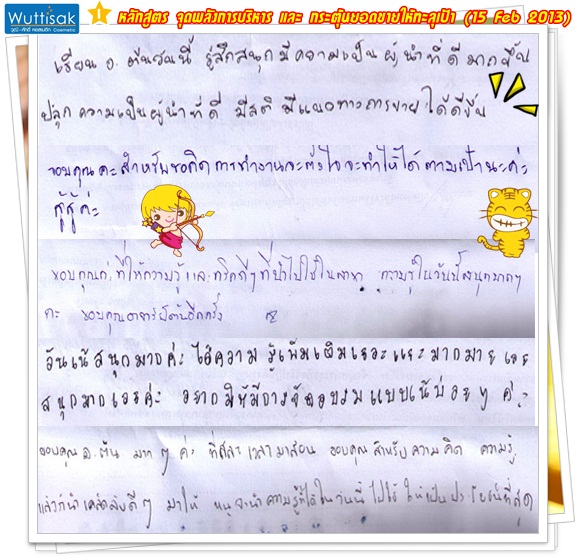 Wuttisak
วุฒิ-ศักดิ์ คอสเมติก Cosmetic
หลักสูตร จุดพลังการบริหาร และ กระตุ้นยอดขายให้ทะลุเป้า (15 Feb 2013)
เรียน อ. ต้นวันนี้ รู้สึกสนุก มีความเป็นผู้นำที่ดีมากขึ้น
ปลุก ความเป็นผู้นำที่ดี มีสติ มีแนวทางการขายได้ดีขึ้น
ขอบคุณคะสำหรับขอคิด การทำงานจะตั้งใจจะทำให้ได้ ตามเป้านะค่ะ
สู้สู้ค่ะ
ขอบคุณค่ะ ที่ให้ความรู้ และ ทริคดีๆ ที่นำไปใช้ในสาขา ความรู้ในวันนี้สนุกมากๆ
คะ ขอบคุณอาจารย์ต้นอีกครั้ง
วันนี้สนุกมากค่ะ ได้ความ รู้เพิ่มเติมเยอะแยะมากมาย เลย
สนุกมากเลยค่ะ อยากให้มีการจัดอบรมแบบนี้บ่อยๆ ค่ะ
ขอบคุณ อ.ต้น มาก ๆ ค่ะ ที่สละเวลามาสอน ขอบคุณสำหรับความคิด ความรู้
แล้วก็นำเคล็ดลับดีๆ มาให้ หนูจะนำความรู้ที่ได้ในวันนี้ ไปใช้ ให้เป็นประโยชน์ที่สุด